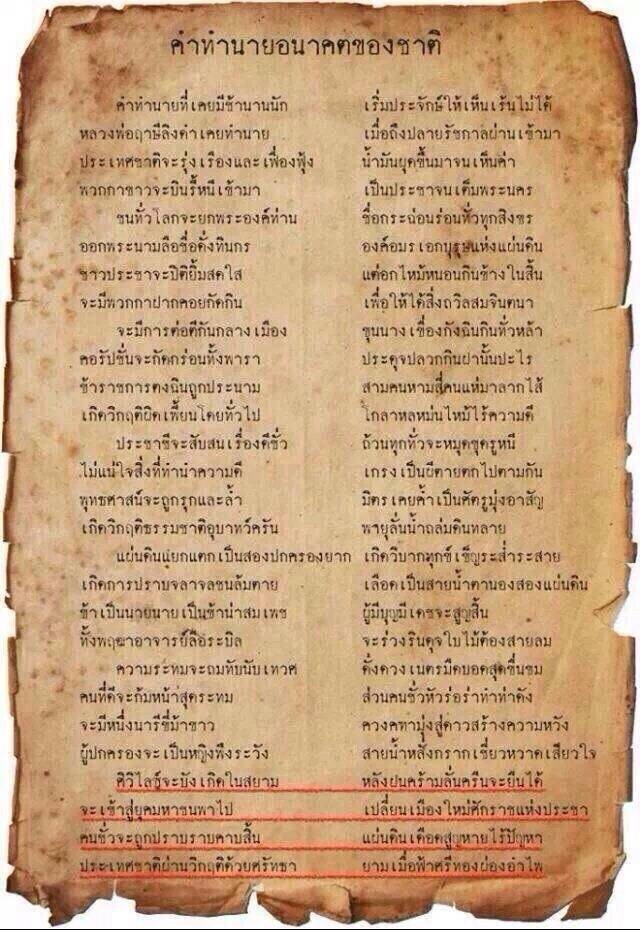 คำทำนายอนาคตของชาติ
คำทำนายที่เคยมีช้านานนัก เริ่มประจักษ์ให้เห็นเร้นไม่ได้
หลวงพ่อฤาษีลิงดำเคยทำนาย เมื่อถึงปลายรัชกาลผ่านเข้ามา
ประเทศชาติจะรุ่งเรืองและเฟื่องฟุ้ง น้ำมันผุดขึ้นมาจนเห็นค่า
พวกกาขาวจะบินรี้หนีเข้ามา เป็นประชาจนเต็มพระนคร
ชนทั่วโลกจะยกพระองค์ท่าน ชื่อกระฉ่อนร่อนทั่วทุกสิงขร
ออกพระนามลือชื่อดั่งทินกร องค์อมรเอกบุรุษแห่งแผ่นดิน
ชาวประชาจะปิติยิ้มสดใส แต่อกไหม้หนอนกินข้างในสิ้น
จะมีพวกกาปากคอยกัดกิน เพื่อให้ได้สิ่งถวิลสมจินตนา
จะมีการต่อตีกันกลางเมือง ขุนนางเขื่องกังฉินกินทั่วหล้า
คอรัปชั่นจะกัดกร่อนทั้งพารา ประดุจปลวกกินฝานั้นปะไร
ข้าราชการตงฉินถูกประนาม สามคนหามสี่คนแห่มาลากไส้
เกิดวิกฤติผิดเพี้ยนโดยทั่วไป โกลาหลหม่นไหม้ไร้ความดี
ประชาชีจะสับสนเรื่องดีชั่ว ถ้วนทุกทั่วจะหมุดขุดรูหนี
ไม่แน่ใจสิ่งที่ทำนำความดี เกรงเป็นผีตายตกไปตามกัน
พุทธศาสน์จะถูกรุกและล้ำ มิตรเคยค้ำเป็นศัตรูมุ่งอาสัญ
เกิดวิกฤติธรรมชาติอุบาทว์ครัน พายุลั่นน้ำถล่มดินทลาย
แผ่นดินแยกแตกเป็นสองปกครองยาก เกิดวิบากทุกข์เข็ญระส่ำระสาย
เกิดการปราบจลาจลชนล้มตาย เลือดเป็นสายน้ำตานองสองแผ่นดิน
ข้าเป็นนายนายเป็นข้าน่าสมเพช ผู้มีบุญมีเดชจะสูญสิ้น
ทั้งพฤฒาอาจารย์ลือระบิล จะร่วงรินดุจใบไม้ต้องสายลม
ความระทมจะถมทับนับเทวศ ดั่งดวงเนตรมืดบอดสุดขื่นขม
คนที่ดีจะก้มหน้าสุดระทม ส่วนคนชั่วหัวร่อร่าทำท่าดัง
จะมีหนึ่งนารีขี่ม้าขาว ควงคทามุ่งสู่ดาวสร้างความหวัง
ผู้ปกครองจะเป็นหญิงพึงระวัง สายน้ำหลั่งกรากเชี่ยวหวาดเสียวใจ
ศิวิไลซ์จะบังเกิดในสยาม หลังฝนคร้ามลั่นครืนจะยืนได้
จะเข้าสู่ยุคมหาชนพาไป เปลี่ยนเมืองใหม่ศักราชแห่งประชา
คนชั่วจะถูกปราบราบคาบสิ้น แผ่นดินเดือดสูญหายไร้ปัญหา
ประเทศชาติผ่านวิกฤติด้วยศรัทธา ยามเมื่อฟ้าศรีทองผ่องอำไพ